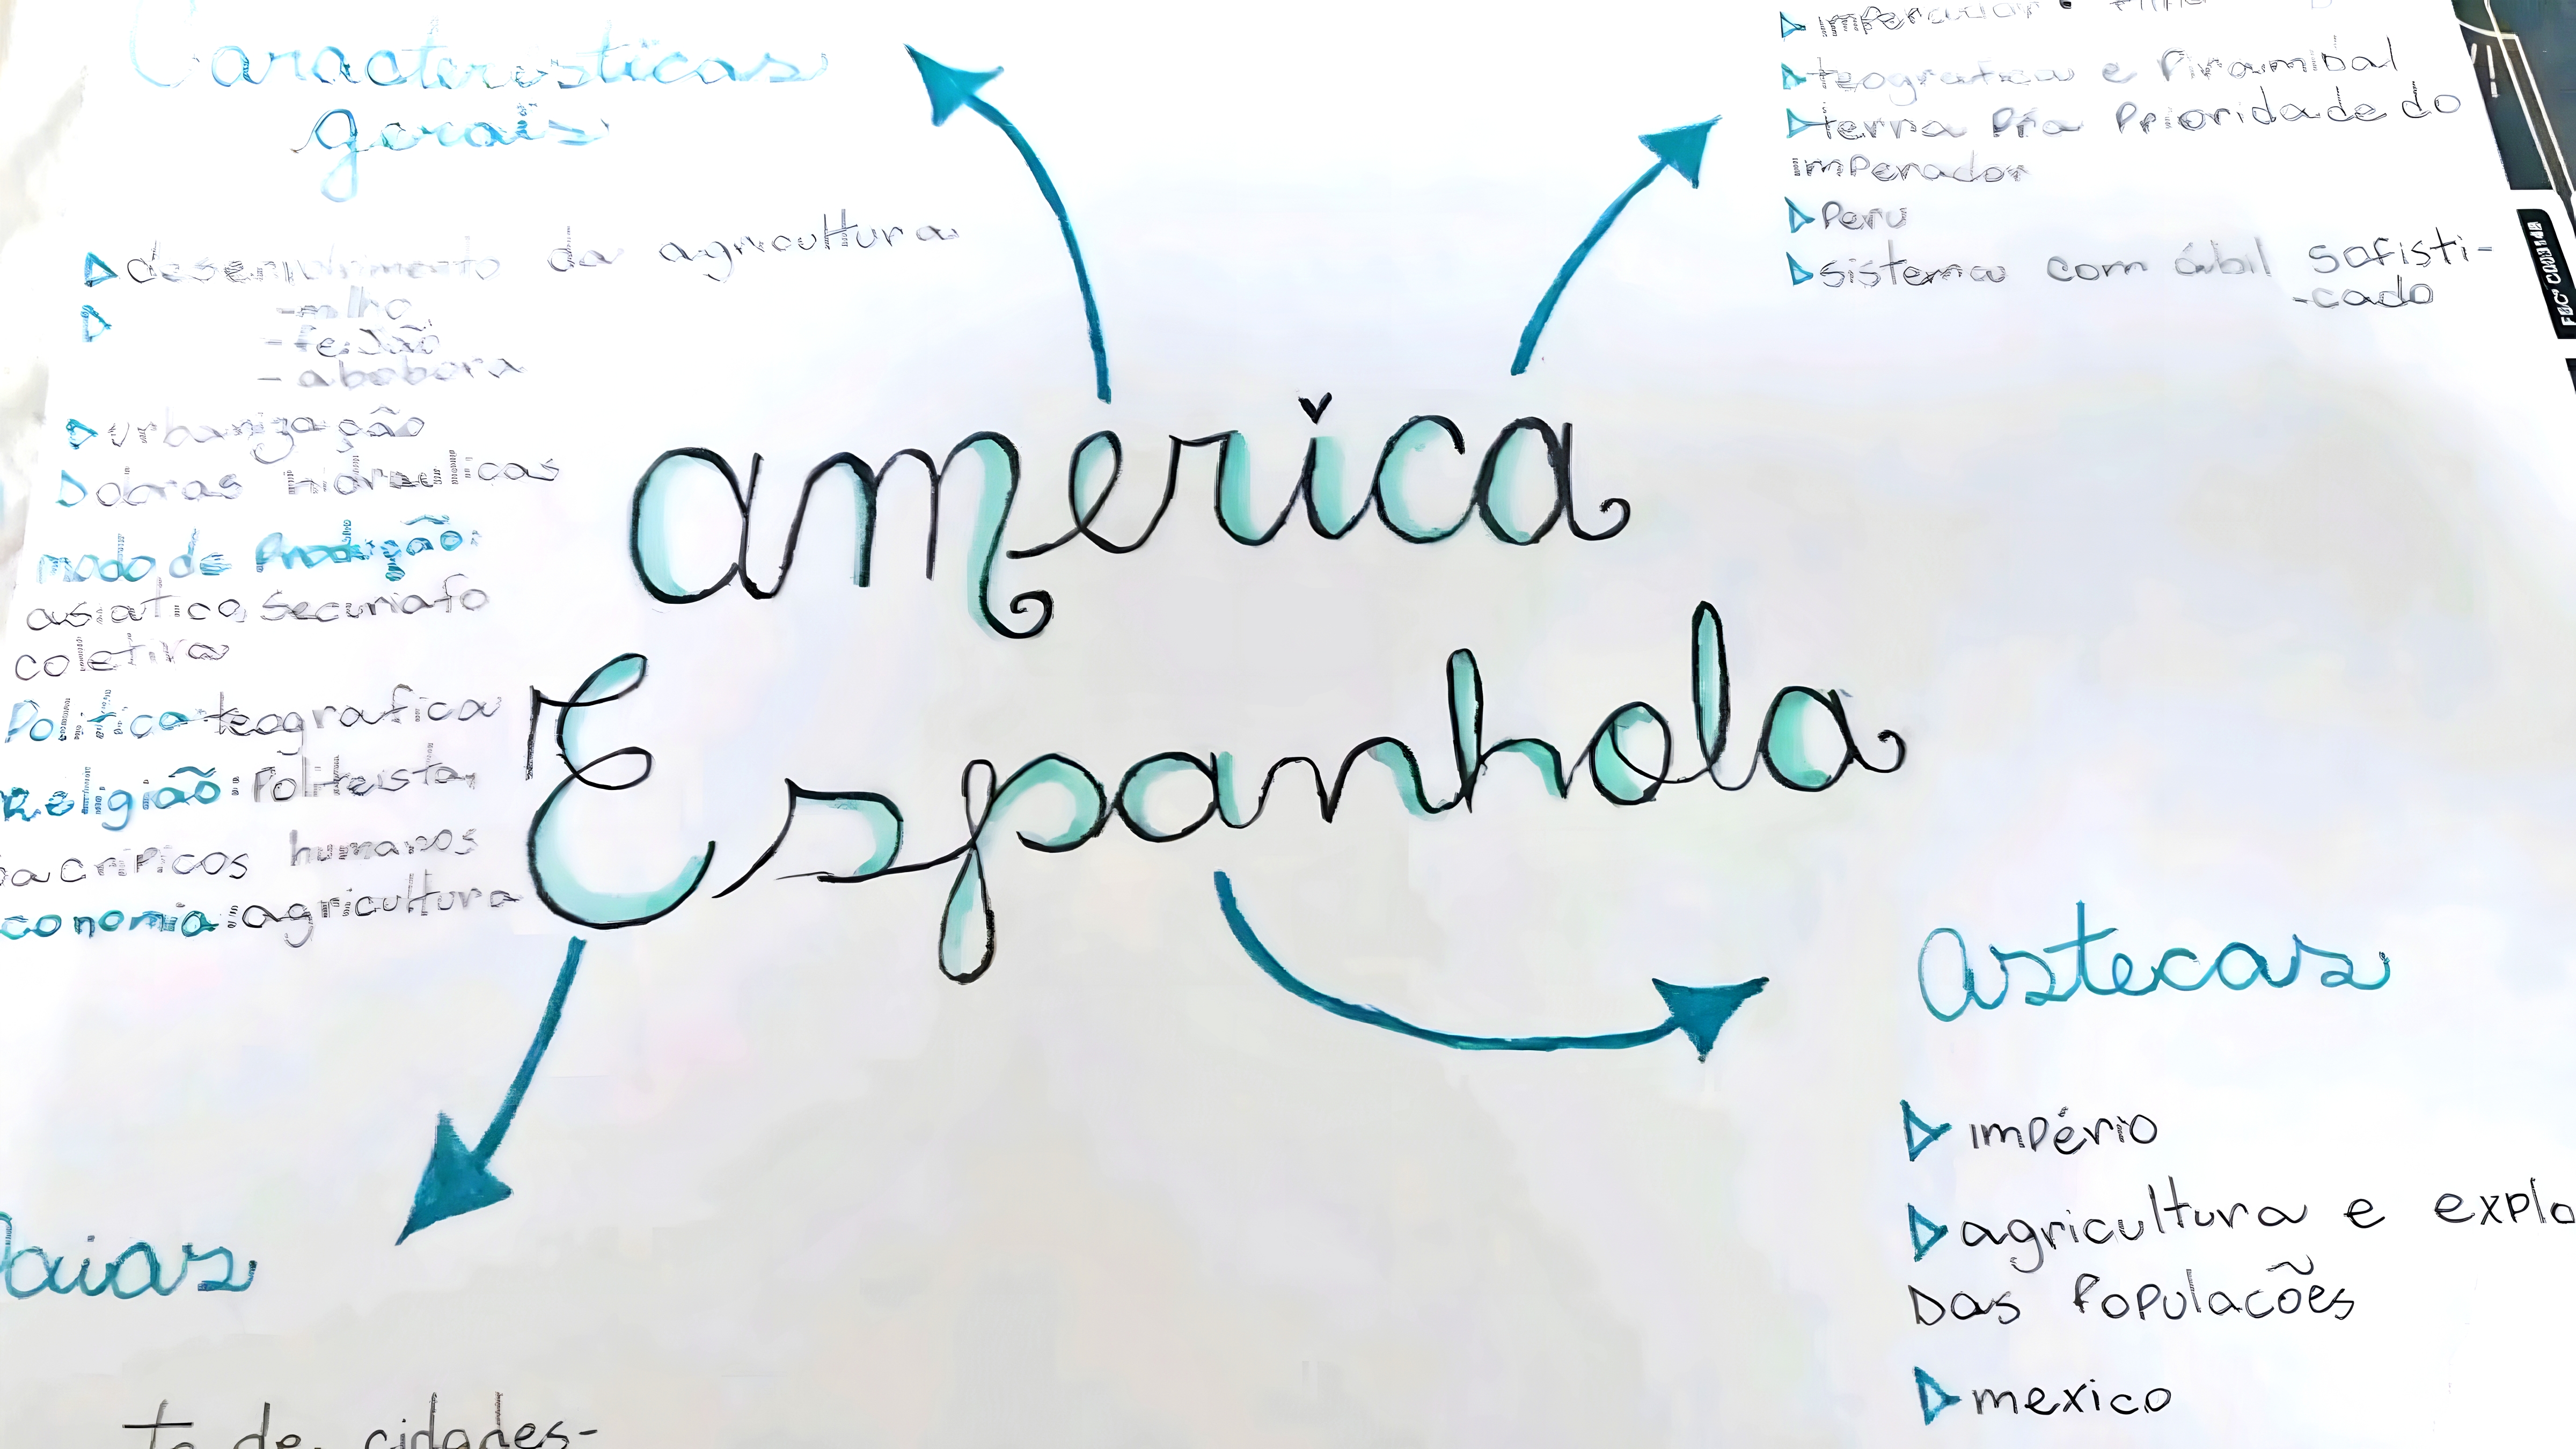 Características
gerais
desenvolvimento da agricultura
-milho
-feijão
-abobora
urbanização
obras hidraulicas
modo de Produção:
asiatico,
coletiva
Politica teografica
Religião: Politeista,
sacrificos humanos
conomia: agricultura
america
Espanhola
imperador:
teografica e Piramibal
terra Pra Prioridade do
imperador
Peru
sistema com ábil sofisti-
-cado
FBC
astecas
império
agricultura e explo
Das Populacões
mexico
aias
to de cidades-